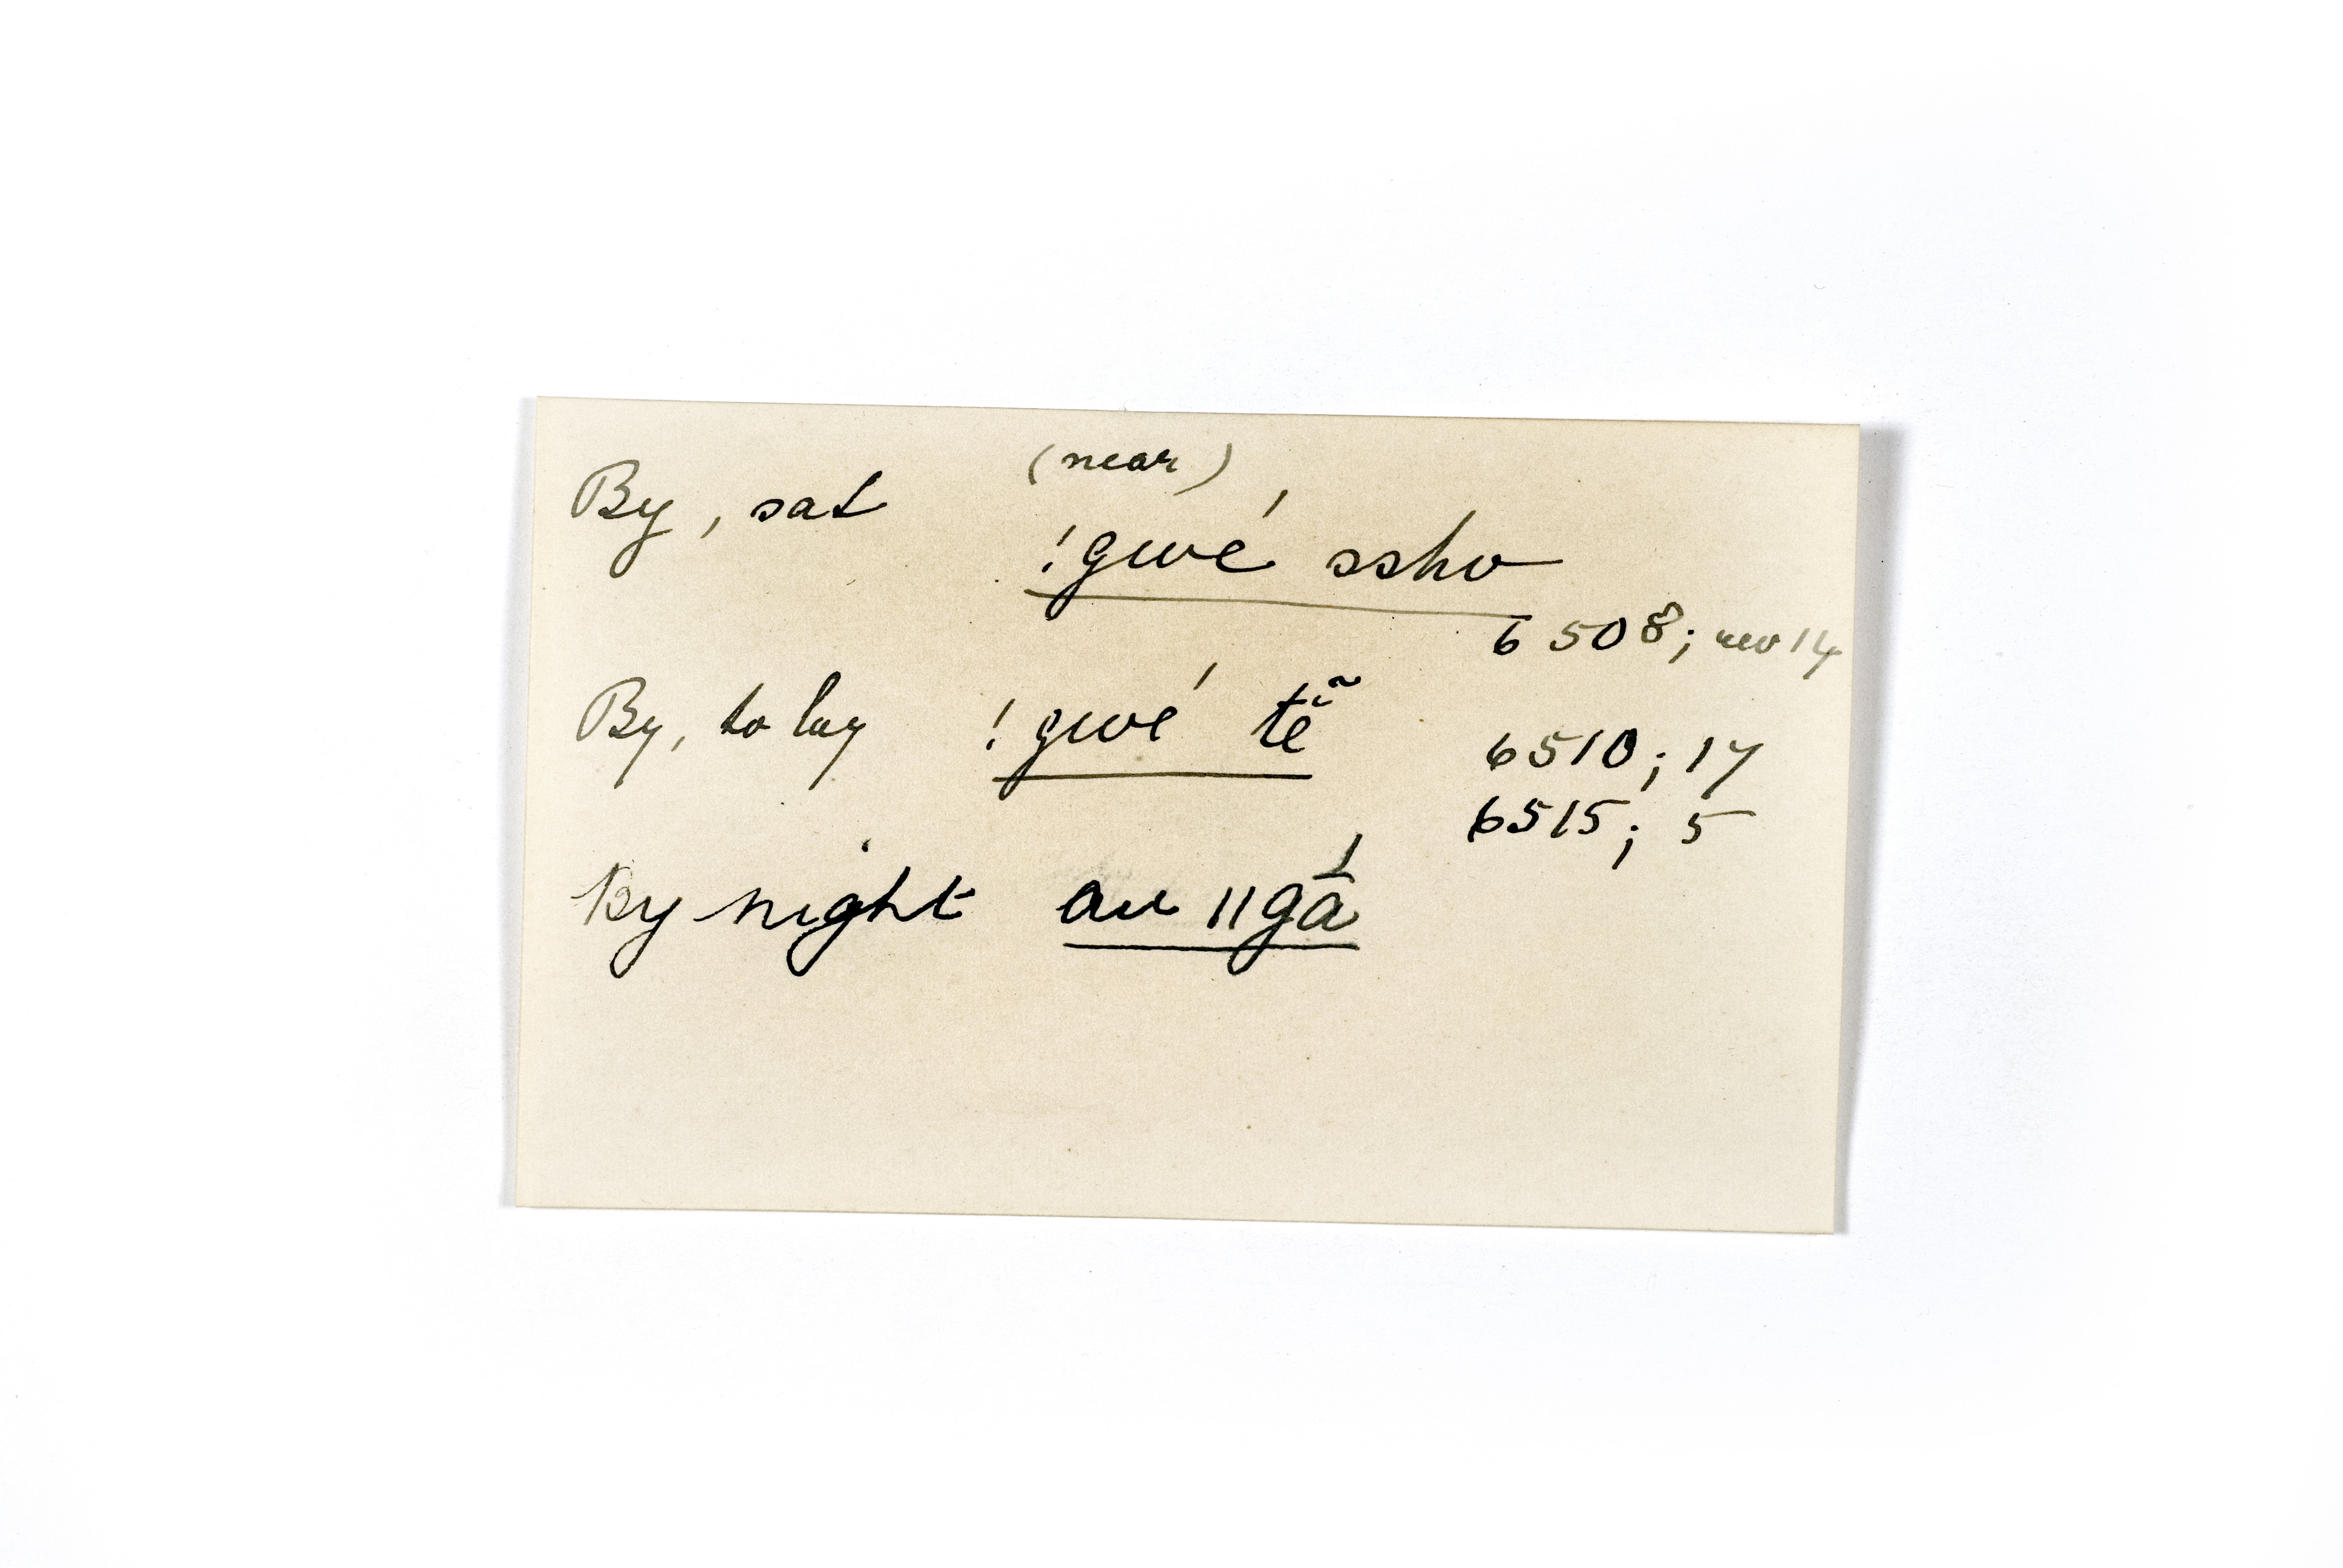 By, sat (near)
!gwé ssho
6508; rev 14
By, to lay !gwé tĕ̃ 6510; 17
6515; 5
By night au ||gā́